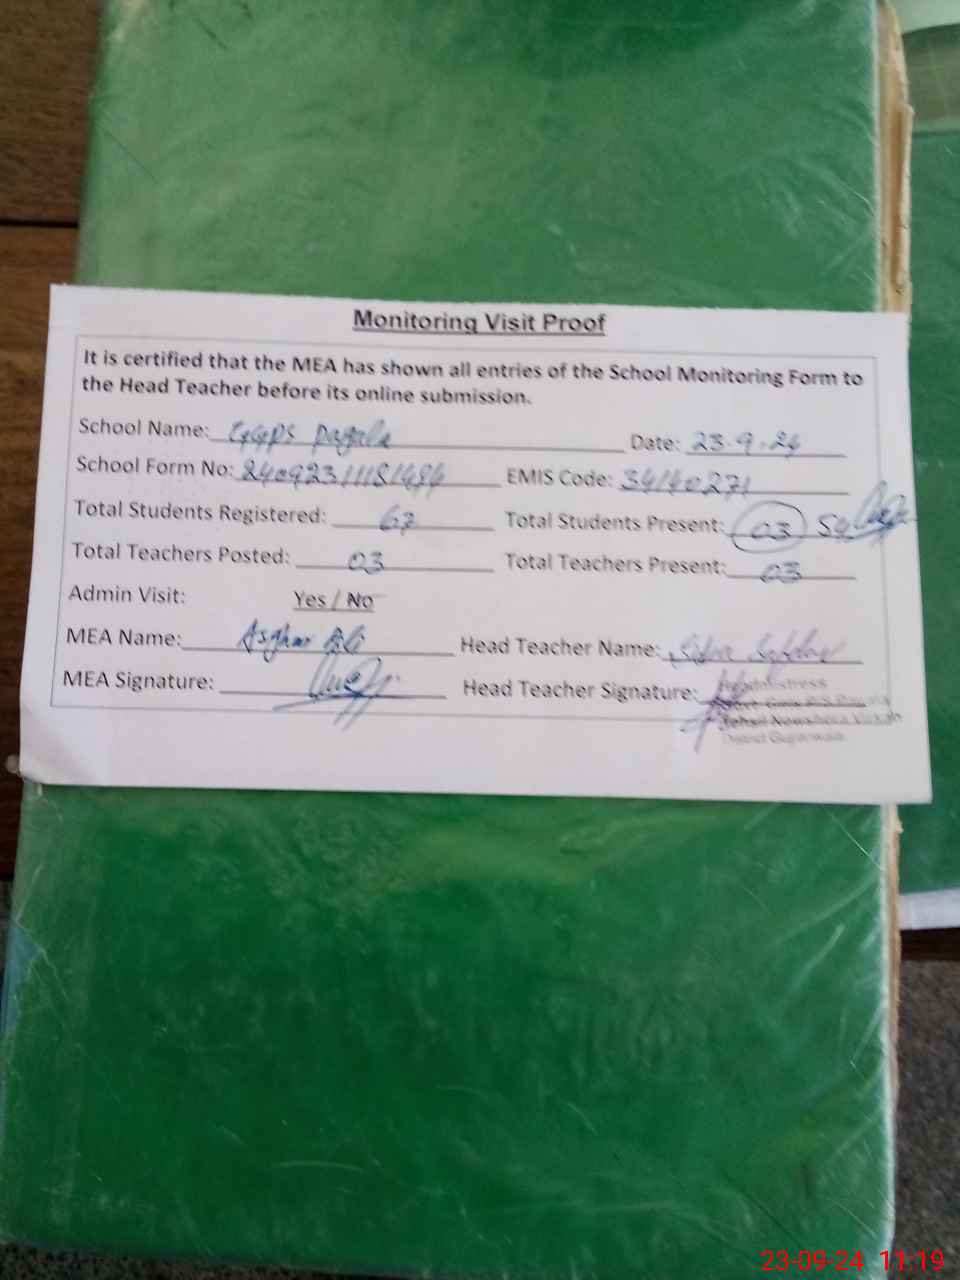 Monitoring Visit Proof
It is certified that the MEA has shown all entries of the School Monitoring Form to
the Head Teacher before its online submission.
School Name: GGPS Date: 23.9.24
School Form No: EMIS Code: 34140271
Total Students Registered: 67 Total Students Present: 03
Total Teachers Posted: 03 Total Teachers Present: 03
Admin Visit: Yes / No
MEA Name: Asghar Ali Head Teacher Name:
MEA Signature: Head Teacher Signature:
Headmistress
Govt. Girls P/S
Tehsil Nowshera Virkan
District Gujranwala
23-09-24 11:19